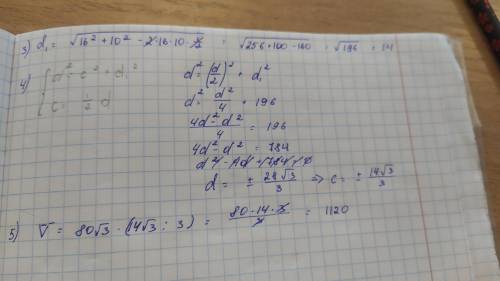 3) d₁ = √(16² + 10² - 2·16·10·½) = √(256 + 100 - 160) = √196 = 14
4) { d² = c² + d₁²
c = ½ d
d² = (d/2)² + d₁²
d² = d²/4 + 196
(4d² - d²)/4 = 196
4d² - d² = 784
d = ± 28√3/3 => c = ± 14√3/3
5) V = 80√3 · (14√3 : 3) = (80 · 14 · 3)/3 = 1120